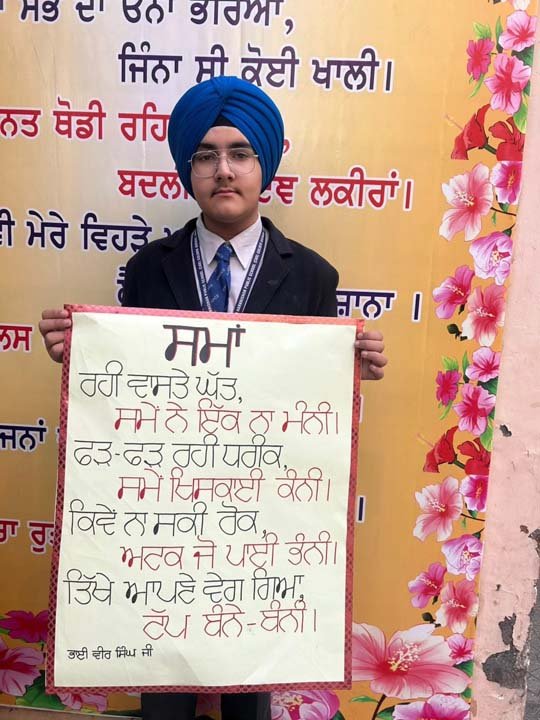 ਸਭ ਦਾ ਓਨਾ ਭਰਿਆ,
ਜਿੰਨਾ ਸੀ ਕੋਈ ਖਾਲੀ।
ਥੋਡੀ
ਲਕੀਰਾਂ।
ਮੇਰੇ ਵਿਹੜੇ
ਸਮਾਂ
ਰਹੀ ਵਾਸਤੇ ਘੱਤ,
ਸਮੇਂ ਨੇ ਇੱਕ ਨਾ ਮੰਨੀ।
ਫੜ-ਫੜ ਰਹੀ ਧਰੀਕ,
ਸਮੇਂ ਖਿਸਕਾਈ ਕੰਨੀ।
ਕਿਵੇਂ ਨਾ ਸਕੀ ਰੋਕ,
ਅਟਕ ਜੋ ਪਾਈ ਭੰਨੀ।
ਤਿੱਖੇ ਆਪਣੇ ਵੇਗ ਗਿਆ,
ਟੱਪ ਬੰਨੇ-ਬੰਨੀ।
ਭਾਈ ਵੀਰ ਸਿੰਘ ਜੀ